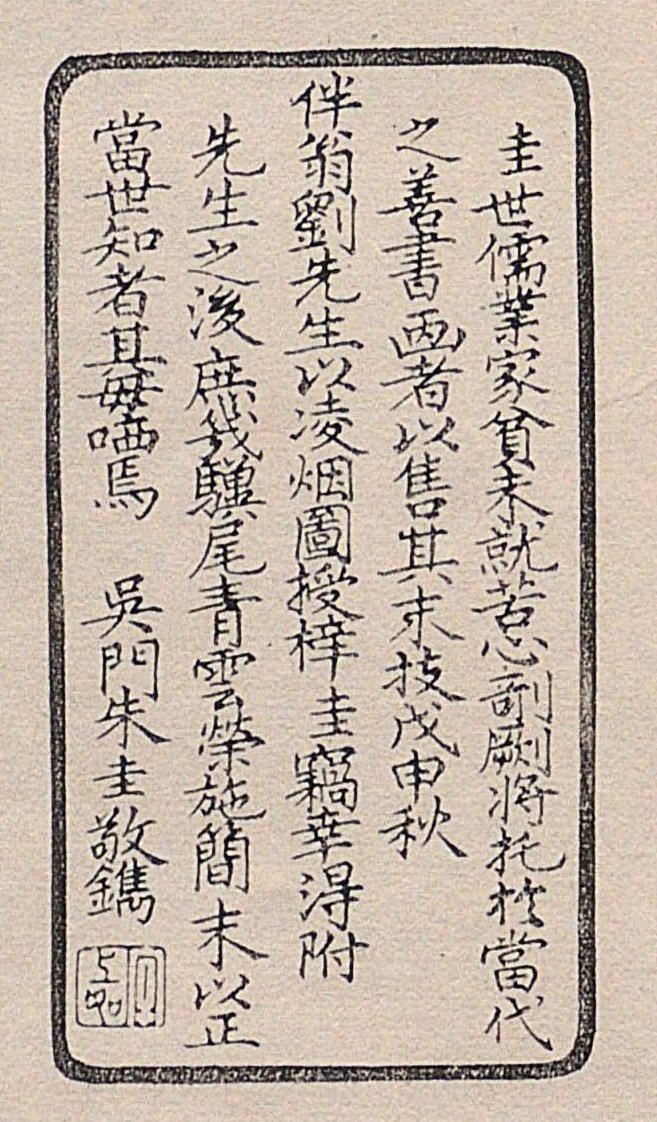 圭世儒業家貧未就苦心剞劂将托於當代
之善書画者以售其末技戊申秋
伴翁劉先生以凌烟圖授梓圭竊幸得附
先生之後庶幾驥尾青雲榮施簡末以正
當世知者其毋哂焉 吳門朱圭敬鐫